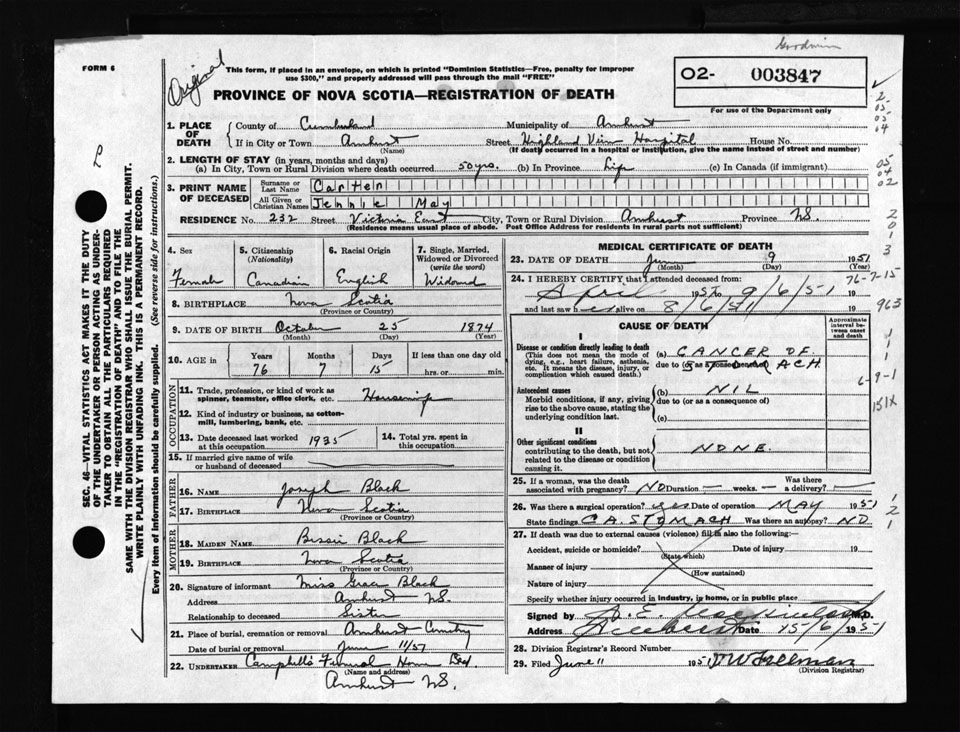 Goodwin
FORM 6
Original
This form, if placed in an envelope, on which is printed "Dominion Statistics—Free, penalty for improper
use $300," and properly addressed will pass through the mail "FREE"
O2- 003847
For use of the Department only
PROVINCE OF NOVA SCOTIA—REGISTRATION OF DEATH
1. PLACE OF DEATH
County of Cumberland Municipality of Amherst
If in City or Town Amherst Street Highland View Hospital House No.
(Name) (If death occurred in a hospital or institution, give the name instead of street and number)
2. LENGTH OF STAY (in years, months and days)
(a) In City, Town or Rural Division where death occurred 50 yrs. (b) In Province Life (c) In Canada (if immigrant)
3. PRINT NAME OF DECEASED
Surname or Last Name Carter
All Given or Christian Names Jennie May
RESIDENCE No. 232 Street Victoria East City, Town or Rural Division Amherst Province N.S.
(Residence means usual place of abode. Post Office Address for residents in rural parts not sufficient)
4. Sex Female
5. Citizenship (Nationality) Canadian
6. Racial Origin English
7. Single, Married, Widowed or Divorced (write the word) Widowed
8. BIRTHPLACE Nova Scotia
(Province or Country)
9. DATE OF BIRTH October 25 1874
(Month) (Day) (Year)
10. AGE in Years 76 Months 7 Days 15 If less than one day old
hrs. or min.
OCCUPATION
11. Trade, profession, or kind of work as
spinner, teamster, office clerk, etc. Housewife
12. Kind of industry or business, as cotton-
mill, lumbering, bank, etc.
13. Date deceased last worked at this occupation 1935
14. Total yrs. spent in this occupation
15. If married give name of wife
or husband of deceased
FATHER
16. NAME Joseph Black
17. BIRTHPLACE Nova Scotia
(Province or Country)
MOTHER
18. MAIDEN NAME Bessie Black
19. BIRTHPLACE Nova Scotia
(Province or Country)
20. Signature of informant Miss Grace Black
Address Amherst N.S.
Relationship to deceased Sister
21. Place of burial, cremation or removal Amherst Cemetery
Date of burial or removal June 11/51
22. UNDERTAKER Campbell's Funeral Home Ltd.
(Name and address)
Amherst N.S.
MEDICAL CERTIFICATE OF DEATH
23. DATE OF DEATH June 9 1951
(Month) (Day)
24. I HEREBY CERTIFY that I attended deceased from:
April 1951 to 9/6/51 19
and last saw h er alive on 8/6/51 19
CAUSE OF DEATH
Approximate interval between onset and death
I
Disease or condition directly leading to death
(This does not mean the mode of
dying, e.g., heart failure, asthenia,
etc. It means the disease, injury, or
complication which caused death.)
(a) CANCER OF
due to (or as a consequence of) STOMACH.
Antecedent causes
Morbid conditions, if any, giving
rise to the above cause, stating the
underlying condition last.
(b) NIL
due to (or as a consequence of)
(c)
II
Other significant conditions
contributing to the death, but not
related to the disease or condition
causing it.
NONE.
25. If a woman, was the death
associated with pregnancy? NO Duration — weeks. — Was there a delivery? —
26. Was there a surgical operation? yes Date of operation MAY 1951
State findings CA. STOMACH Was there an autopsy? NO
27. If death was due to external causes (violence) fill in also the following:—
Accident, suicide or homicide? Date of injury 19
(State which)
Manner of injury
(How sustained)
Nature of injury
Specify whether injury occurred in industry, in home, or in public place
Signed by M.D.
Address Amherst Date 15/6/1951
28. Division Registrar's Record Number
29. Filed June 11 195
(Division Registrar)
SEC. 46—VITAL STATISTICS ACT MAKES IT THE DUTY
OF THE UNDERTAKER OR PERSON ACTING AS UNDER-
TAKER TO OBTAIN ALL THE PARTICULARS REQUIRED
IN THE "REGISTRATION OF DEATH" AND TO FILE THE
SAME WITH THE DIVISION REGISTRAR WHO SHALL ISSUE THE BURIAL PERMIT.
WRITE PLAINLY WITH UNFADING INK. THIS IS A PERMANENT RECORD.
Every item of information should be carefully supplied. (See reverse side for instructions.)
2
05
05
04
05
04
02
2
0
1
3
76-7-15
963
1
1
1
6-9-1
151X
1
2
1